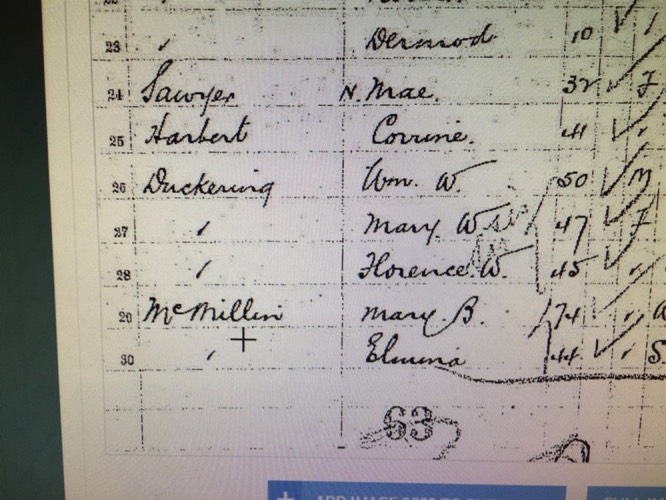 23 " Dermod 10
24 Sawyer N. Mae. 32 F
25 Harbert Corrine. 41 "
26 Duckering Wm. W. 50 M
27 " Mary W 47 F
28 " Florence W. 45 "
29 McMillin Mary B. 74 "
30 " Elmina 44 " S
63